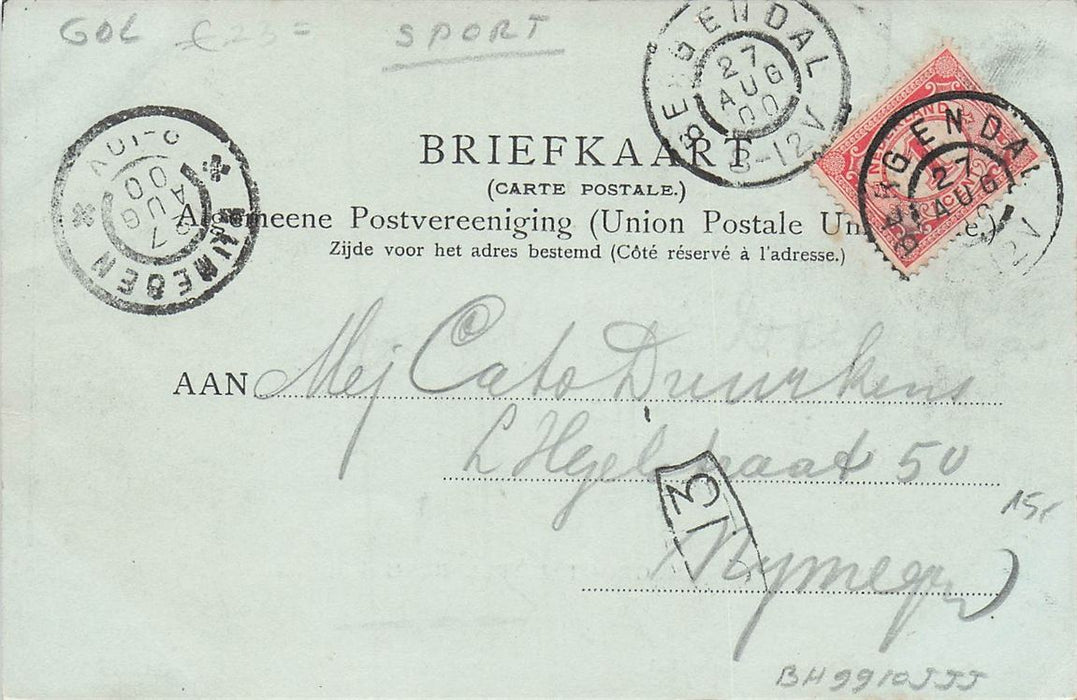 GOL £23= SPORT
BERGENDAL
27
AUG
00
8-12V
NEDERLAND
BERGENDAL
27
AUG
12V
NIJMEGEN
27
AUG
00
BRIEFKAART
(CARTE POSTALE.)
Algemeene Postvereeniging (Union Postale Universelle.)
Zijde voor het adres bestemd (Côté réservé à l'adresse.)
AAN Mej Cato Druurkens
straat 50
13
15,-
Nymegen
BH9910JJJ